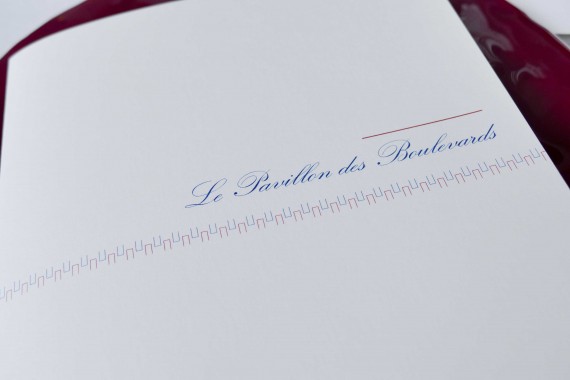 Le Pavillon des Boulevards